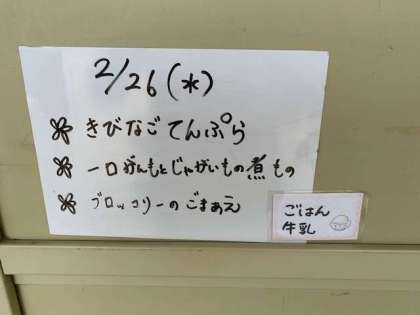 2/26(水)
きびなごてんぷら
一口がんもとじゃがいもの煮もの
ブロッコリーのごまあえ
ごはん
牛乳